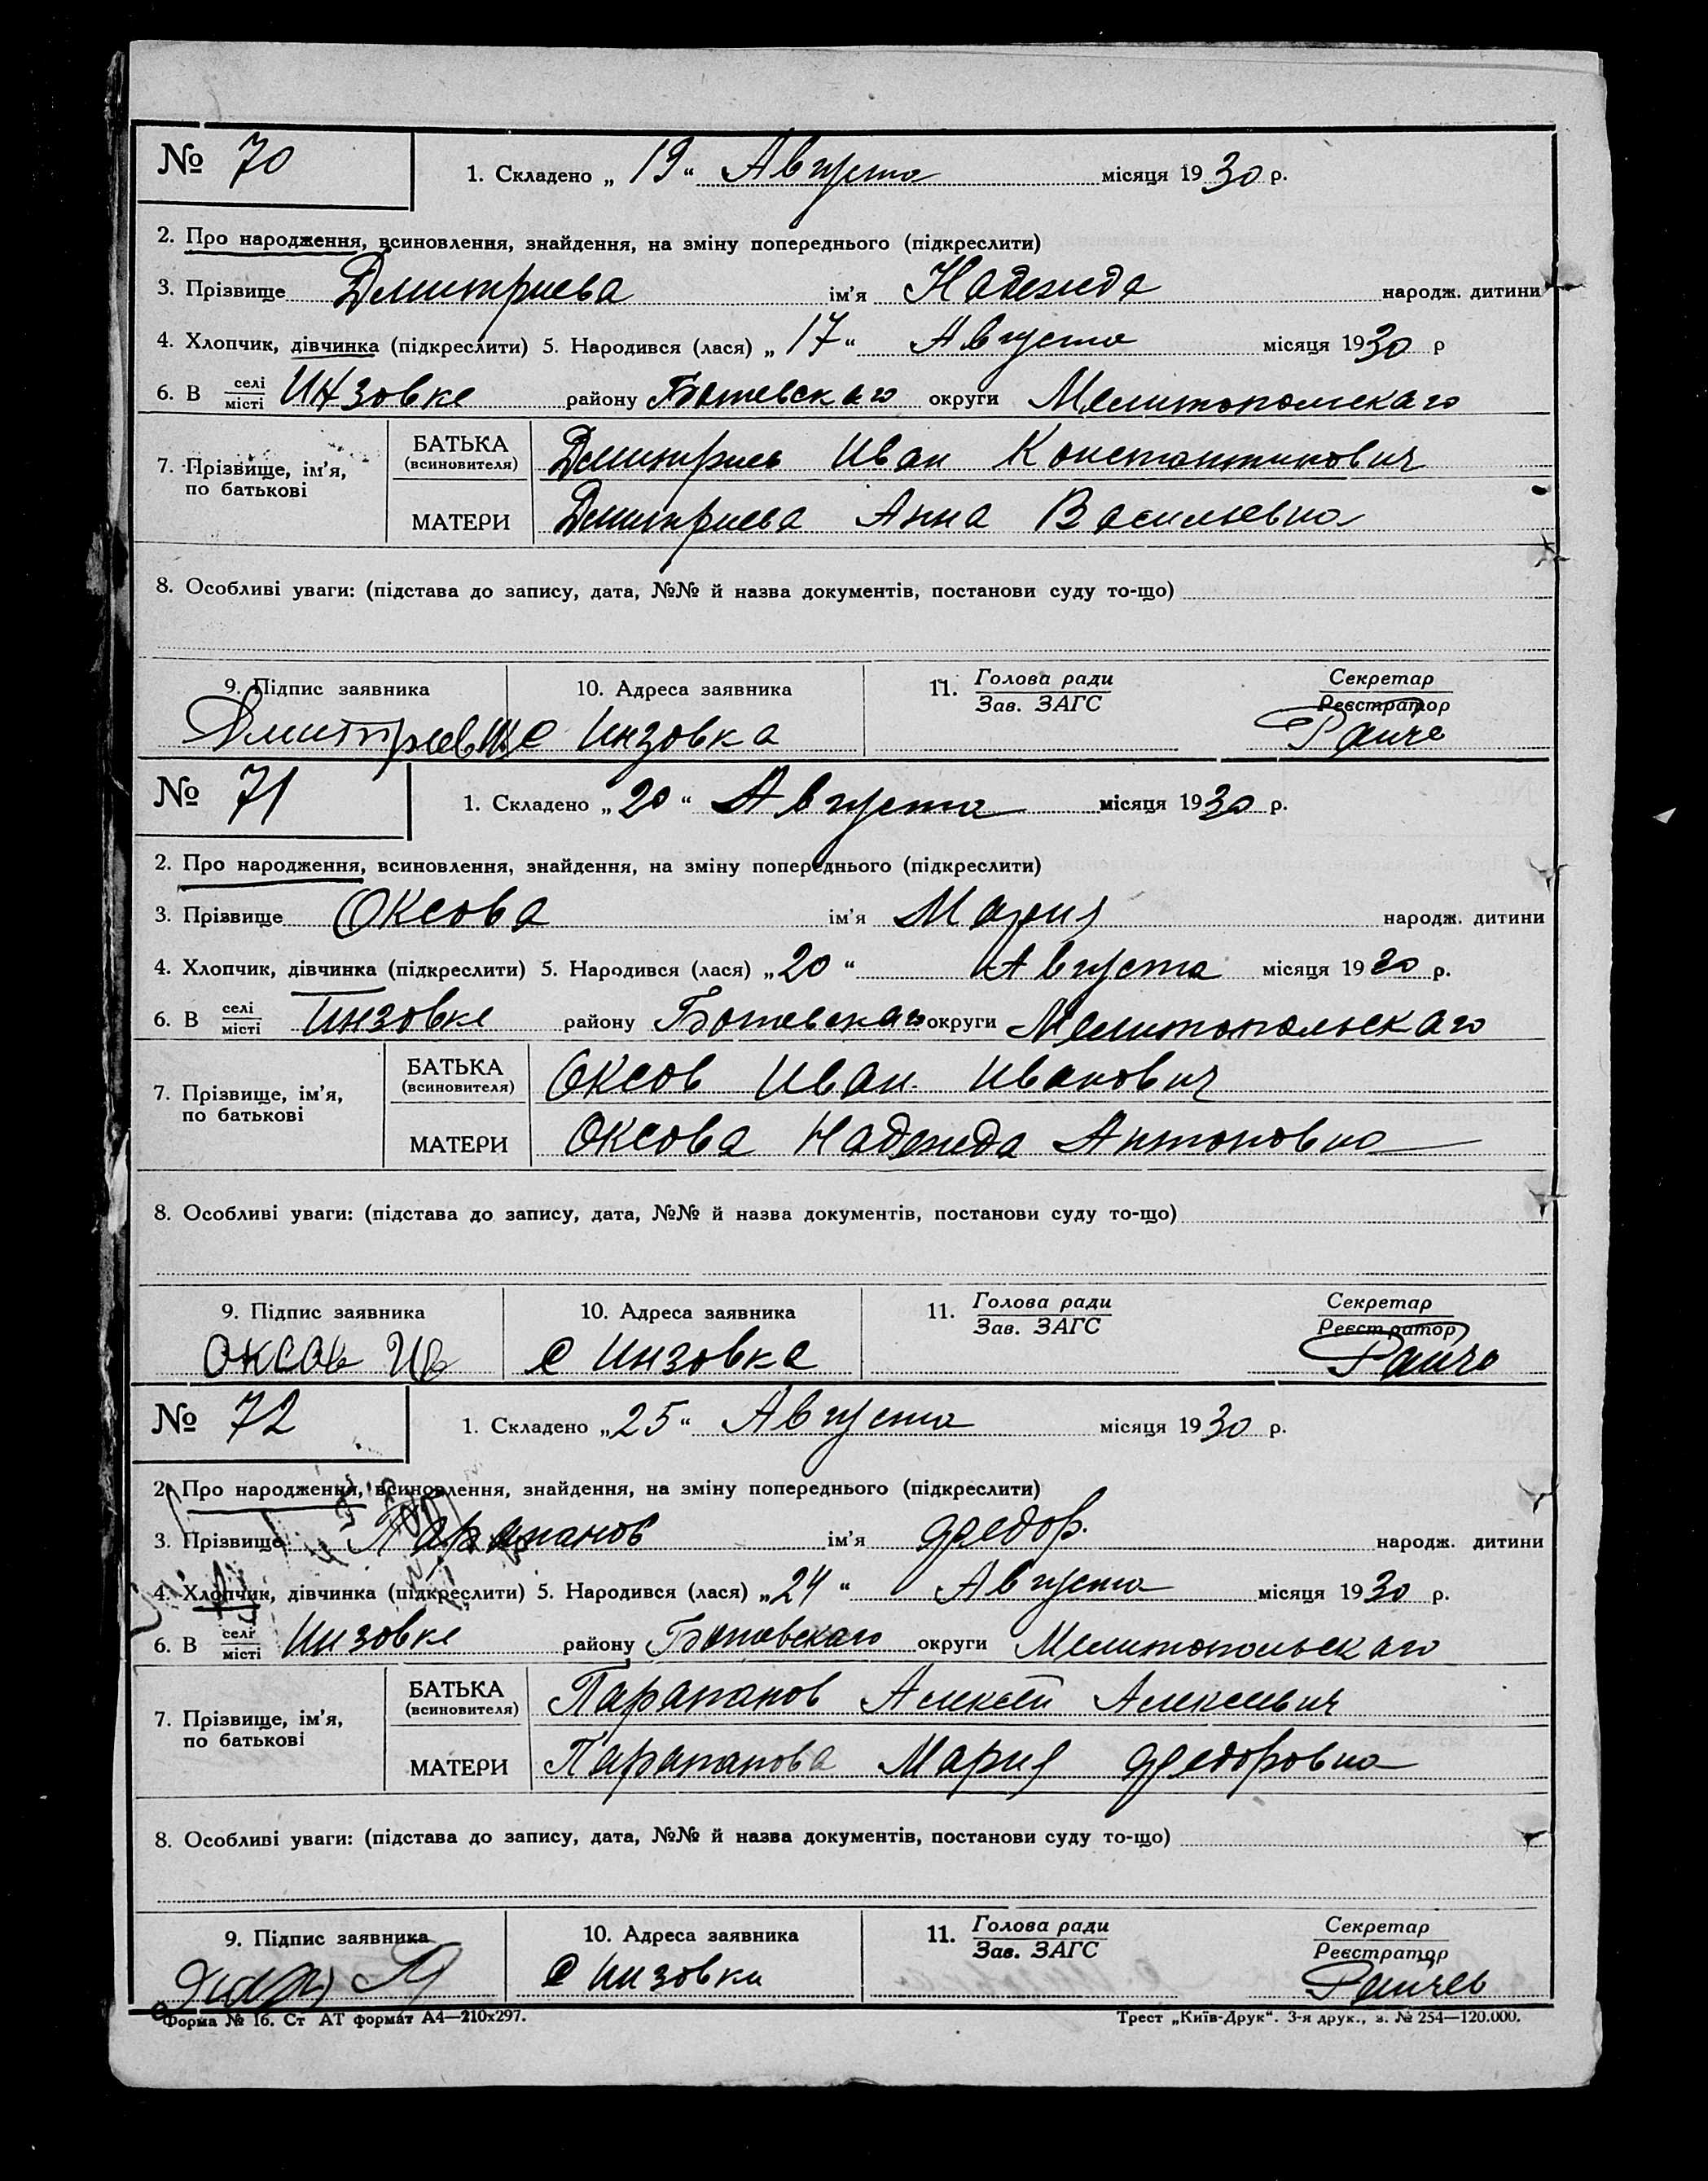 № 70
1. Складено „19“ Августа місяця 1930 р.
2. Про народження, всиновлення, знайдення, на зміну попереднього (підкреслити)
3. Прізвище Дмитриева ім’я Надежда народж. дитини
4. Хлопчик, дівчинка (підкреслити) 5. Народився (лася) „17“ Августа місяця 1930 р
6. В селі місті Инзовке району Ботевскаго округи Мелитопольскаго
7. Прізвище, ім’я, по батькові
БАТЬКА (всиновителя) Дмитриев Иван Константинович
МАТЕРИ Дмитриева Анна Васильевна
8. Особливі уваги: (підстава до запису, дата, №№ й назва документів, постанови суду то-що)
9. Підпис заявника 10. Адреса заявника 11. Голова ради Зав. ЗАГС Секретар Реєстратор
Дмитриев с Инзовка
№ 71
1. Складено „20“ Августа місяця 1930 р.
2. Про народження, всиновлення, знайдення, на зміну попереднього (підкреслити)
3. Прізвище Оксова ім’я Мария народж. дитини
4. Хлопчик, дівчинка (підкреслити) 5. Народився (лася) „20“ Августа місяця 1930 р.
6. В селі місті Инзовке району Ботевскаго округи Мелитопольскаго
7. Прізвище, ім’я, по батькові
БАТЬКА (всиновителя) Оксов Иван Иванович
МАТЕРИ Оксова Надежда Антоновна
8. Особливі уваги: (підстава до запису, дата, №№ й назва документів, постанови суду то-що)
9. Підпис заявника 10. Адреса заявника 11. Голова ради Зав. ЗАГС Секретар Реєстратор
Оксов Ив с Инзовка
№ 72
1. Складено „25“ Августа місяця 1930 р.
2. Про народження, всиновлення, знайдення, на зміну попереднього (підкреслити)
3. Прізвище Парапанов ім’я Федор. народж. дитини
4. Хлопчик, дівчинка (підкреслити) 5. Народився (лася) „24“ Августа місяця 1930 р.
6. В селі місті Инзовке району Ботевскаго округи Мелитопольскаго
7. Прізвище, ім’я, по батькові
БАТЬКА (всиновителя) Парапанов Алексей Алексеевич
МАТЕРИ Парапанова Мария Федоровна
8. Особливі уваги: (підстава до запису, дата, №№ й назва документів, постанови суду то-що)
9. Підпис заявника 10. Адреса заявника 11. Голова ради Зав. ЗАГС Секретар Реєстратор
с Инзовки Райчев
Форма № 16. Ст АТ формат А4—210х297. Трест „Київ-Друк“. 3-я друк., з. № 254—120.000.